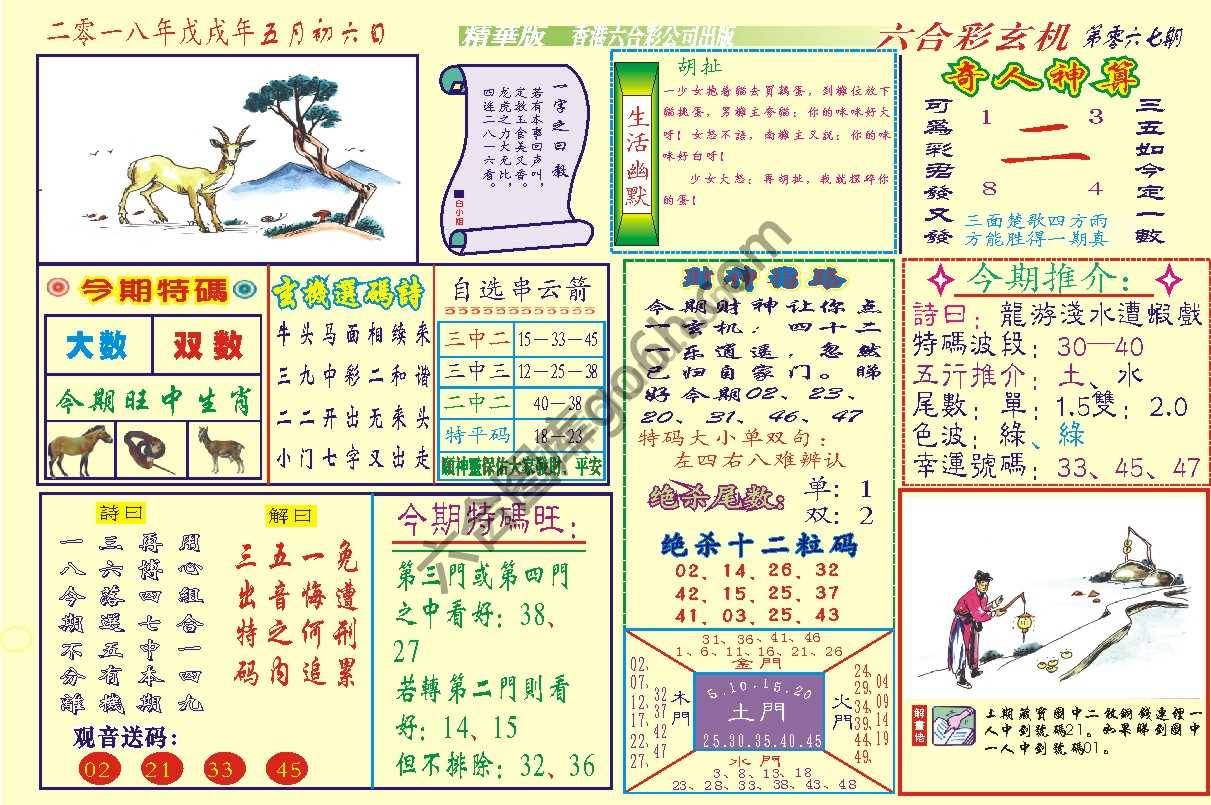 二零一八年戊戌年五月初六日
精華版 香港六合彩公司出版
六合彩玄机 第零六七期
一字之曰教
若有本事回声叫，
定教玉食美又香。
龙虎之力大无比，
四连二八一六看。
白小姐
生活幽默
胡扯
一少女抱着貓去買鷄蛋，到攤位放下
貓挑蛋，男攤主夸貓：你的咪咪好大
呀！女怒不語，南攤主又說：你的咪
咪好白呀！
少女大怒：再胡扯，我就摆碎你
的蛋！
奇人神算
可爲彩君發又發
1 3
二
8 4
三五如今定一數
三面楚歌四方雨
方能胜得一期真
今期特碼
大数 双数
今期旺中生肖
玄機選碼詩
牛头马面相续来
三九中彩二和谐
二二开出无来头
小门七字又出走
自选串云箭
三中二 15—33—45
三中三 12—25—38
二中二 40—38
特平码 18—23
願神靈保佑大家發財、平安
财神
今期财神让你点
一玄机：四十二
一乐逍遥，忽然
已归自家门。睇
好今期02、23、
20、31、46、47
特码大小单双句：
左四右八难辨认
绝杀尾数：
单：1
双：2
绝杀十二粒码
02、14、26、32
42、15、25、37
41、03、25、43
今期推介：
詩曰：龍游淺水遭蝦戲
特碼波段：30—40
五行推介：土、水
尾數：單：1.5雙：2.0
色波：綠、綠
幸運號碼：33、45、47
詩曰
用心組合一四九
再博四七中本期
三六落選五有機
一八今期不分離
解曰
免遭刑累
一悔何追
五音之内
三出特码
观音送码：
02 21 33 45
今期特碼旺：
第三門或第四門
之中看好：38、
27
若轉第二門則看
好：14、15
但不排除：32、36
31、36、41、46
1、6、11、16、21、26
金門
02、07、12、17、22、27、
32、37、42、47
木門
5.10.15.20
土門
25.30.35.40.45
火門
24、29、34、39、44、49、
04、09、14、19
水門
3、8、13、18
23、28、33、38、43、48
解畫佬
上期藏寶圖中二枚銅錢連裡一
人中到號碼21。如果睇到圖中
一人中到號碼01。
六合图库go6h.com